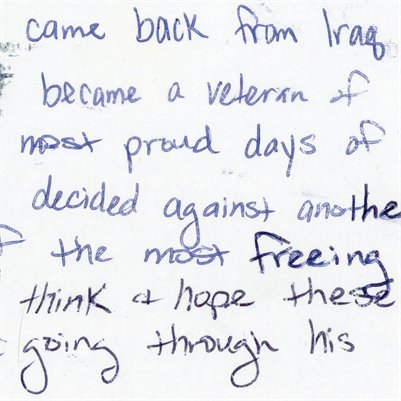 came back from Iraq
became a veteran of
most proud days of
decided against anothe
f the most freeing
think & hope these
going through his